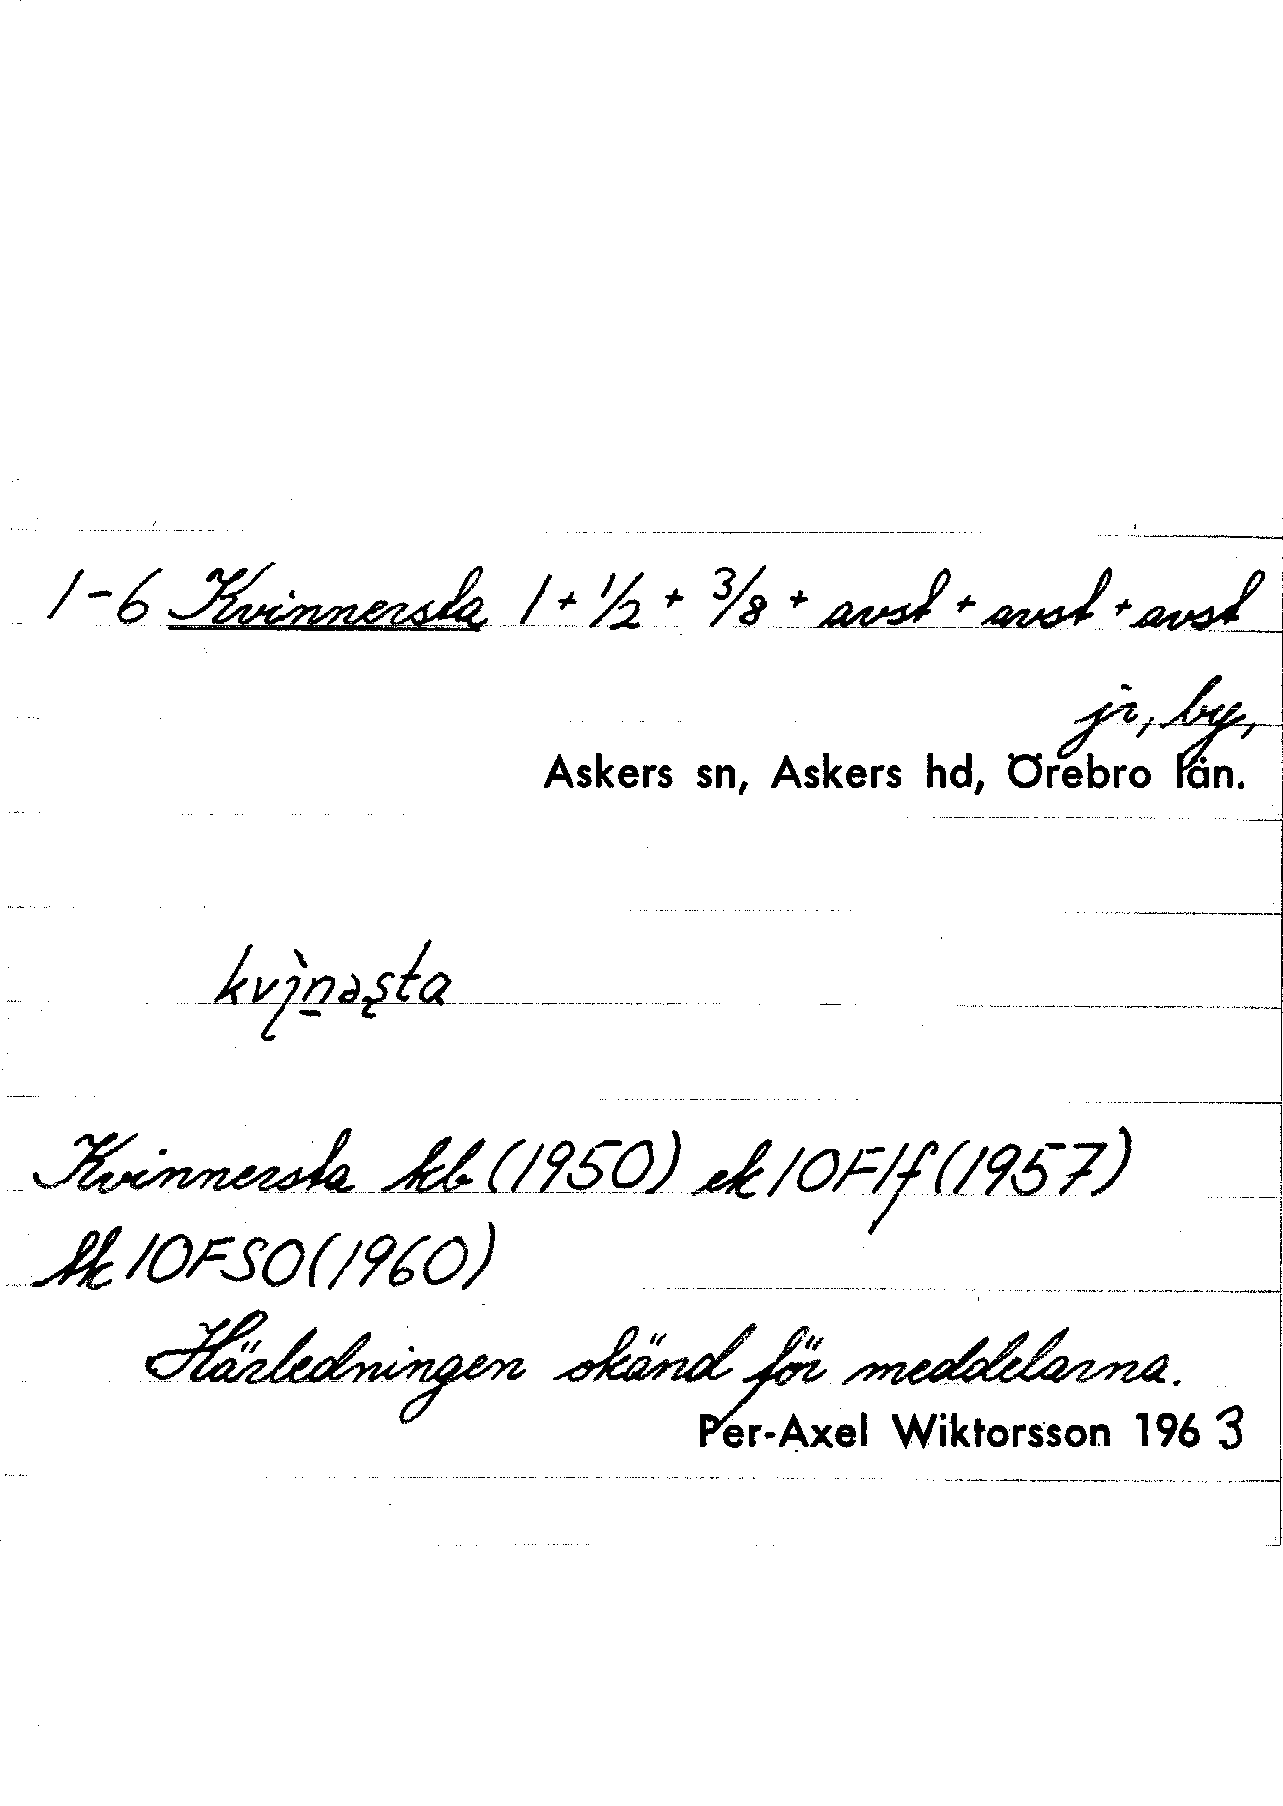 1-6 Kvinnersta 1 + 1/2 + 3/8 + avst + avst + avst
jr, by,
Askers sn, Askers hd, Örebro län.
Kvinnersta kb (1950) ek 10F1f (1957)
tk 10FSO (1960)
Härledningen okänd för meddelarna.
Per-Axel Wiktorsson 1963